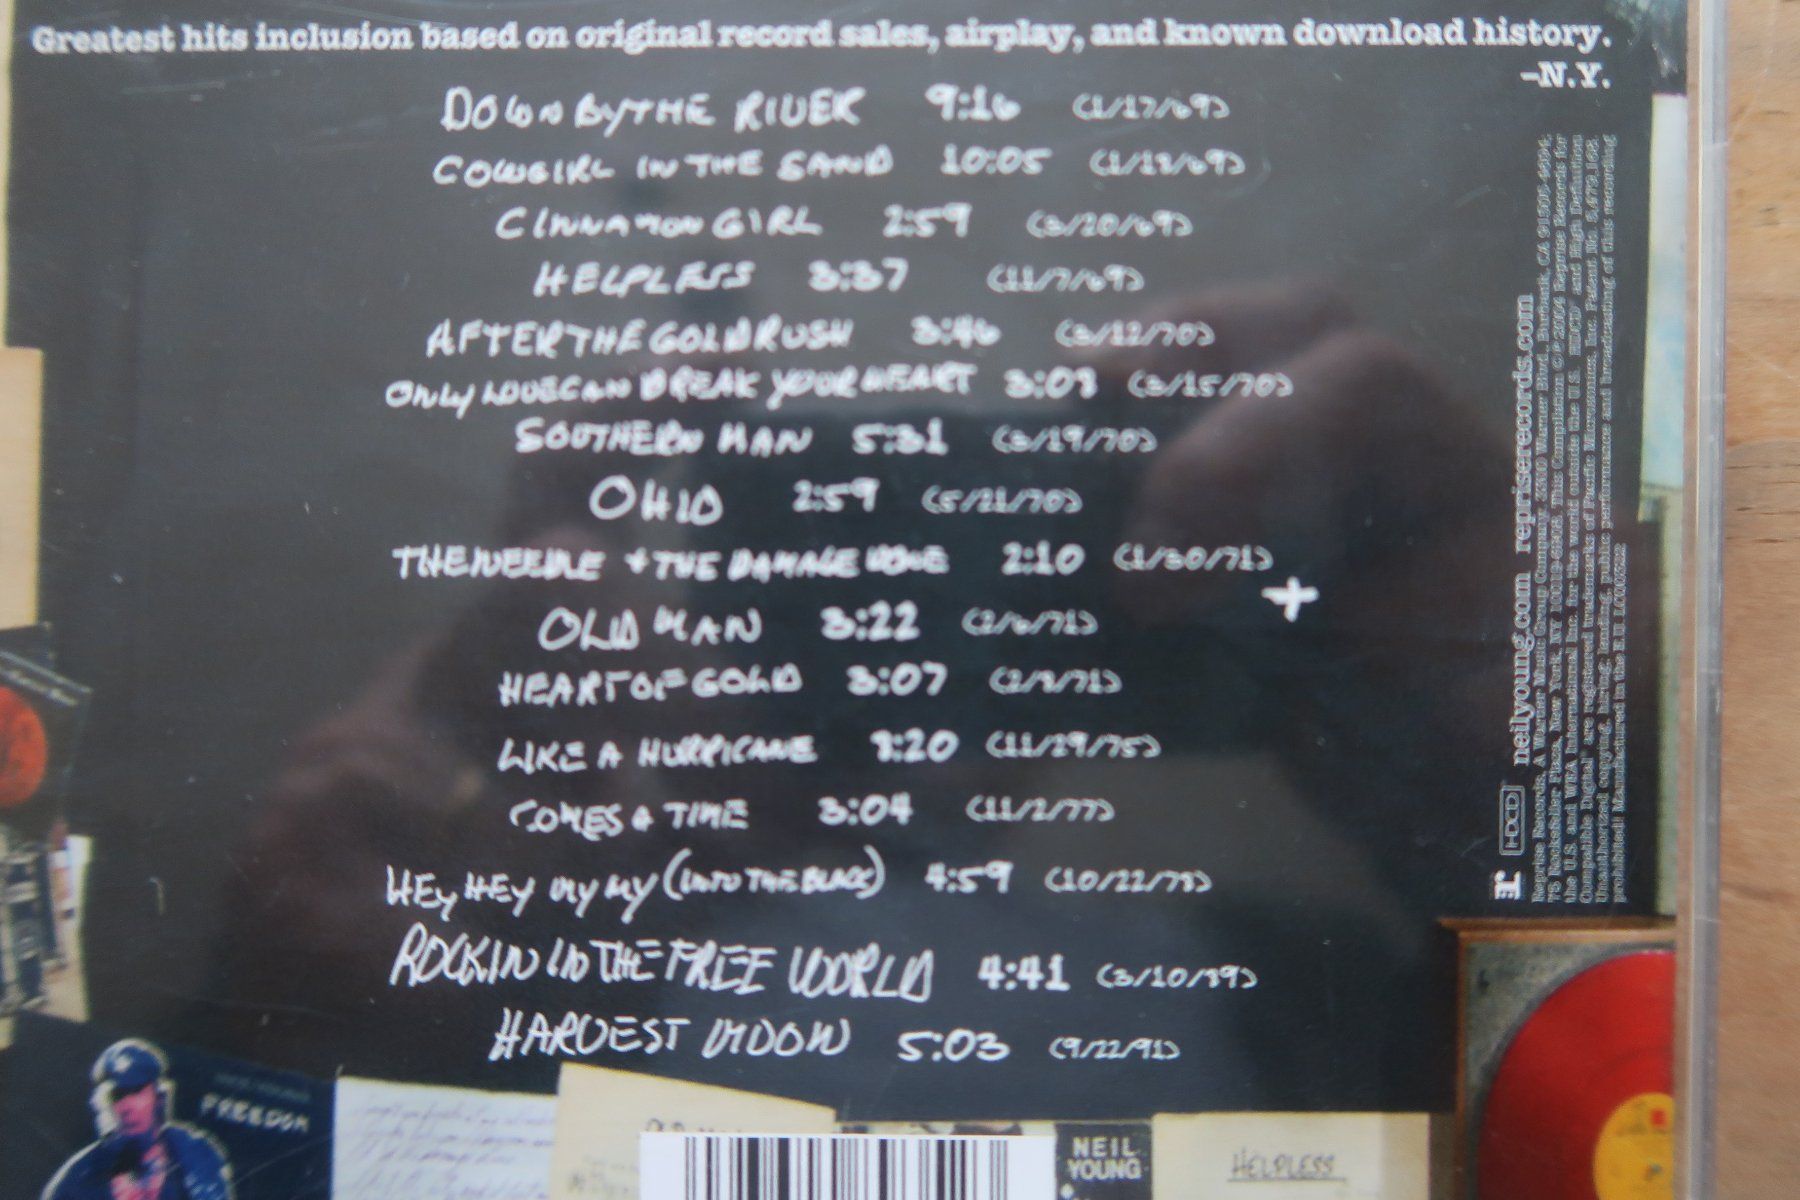 Greatest hits inclusion based on original record sales, airplay, and known download history.
-N.Y.
DOWN BY THE RIVER 9:16 (1/17/69)
COWGIRL IN THE SAND 10:05 (1/18/69)
CINNAMON GIRL 2:59 (3/20/69)
HELPLESS 3:37 (11/7/69)
AFTER THE GOLDRUSH 3:46 (3/12/70)
ONLY LOVE CAN BREAK YOUR HEART 3:08 (3/15/70)
SOUTHERN MAN 5:31 (3/19/70)
OHIO 2:59 (5/21/70)
THE NEEDLE + THE DAMAGE DONE 2:10 (1/30/71)
+
OLD MAN 3:22 (2/6/71)
HEART OF GOLD 3:07 (2/8/71)
LIKE A HURRICANE 8:20 (11/29/75)
COMES A TIME 3:04 (11/2/77)
HEY HEY MY MY (INTO THE BLACK) 4:59 (10/22/78)
ROCKIN IN THE FREE WORLD 4:41 (3/10/89)
HARVEST MOON 5:03 (9/22/91)
r HDCD neilyoung.com repriserecords.com
Reprise Records, A Warner Music Group Company, 3300 Warner Blvd., Burbank, CA
75 Rockefeller Plaza, New York, NY This Compilation 2004 Reprise Records for
the U.S. and WEA International Inc. for the world outside the U.S. HDCD and High Definition
Compatible Digital are registered trademarks of Pacific Microsonics, Inc. Patent No. 5,479,168.
Unauthorized copying, hiring, lending, public performance and broadcasting of this recording
prohibited! Manufactured in the
FREEDOM
NEIL
YOUNG
HELPLESS